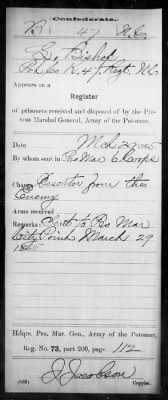 Confederate.
B 47 N.C.
G. Bishop
Pvt. Co. B. 47, Regt. N.C.
Appears on a
Register
of prisoners received and disposed of by the Provost Marshal General, Army of the Potomac.
Date Mch 29 1865
By whom sent in Pro Mar 6 Corps
Charge Deserter from the
Enemy
Arms received
Remarks: Sent to Pro Mar
City Point March 29
1865
Hdqrs. Pro. Mar. Gen., Army of the Potomac,
Reg. No. 73, part 200, page 112
J. Jacobson
Copyist.